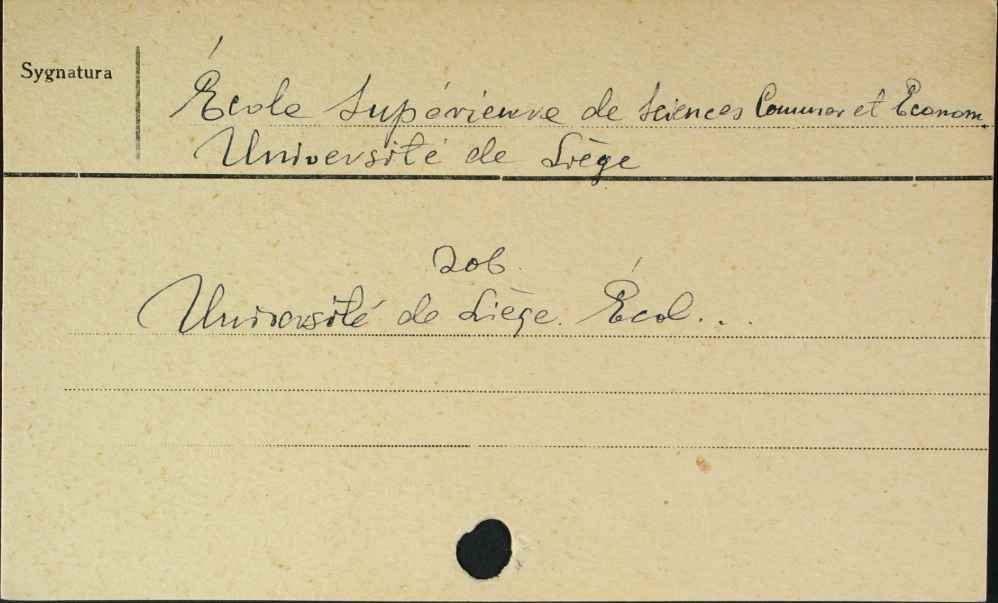 Sygnatura
École Supérieure de Sciences Commer et Econom.
Université de Liège
Zob.
Université de Liège. Écol...